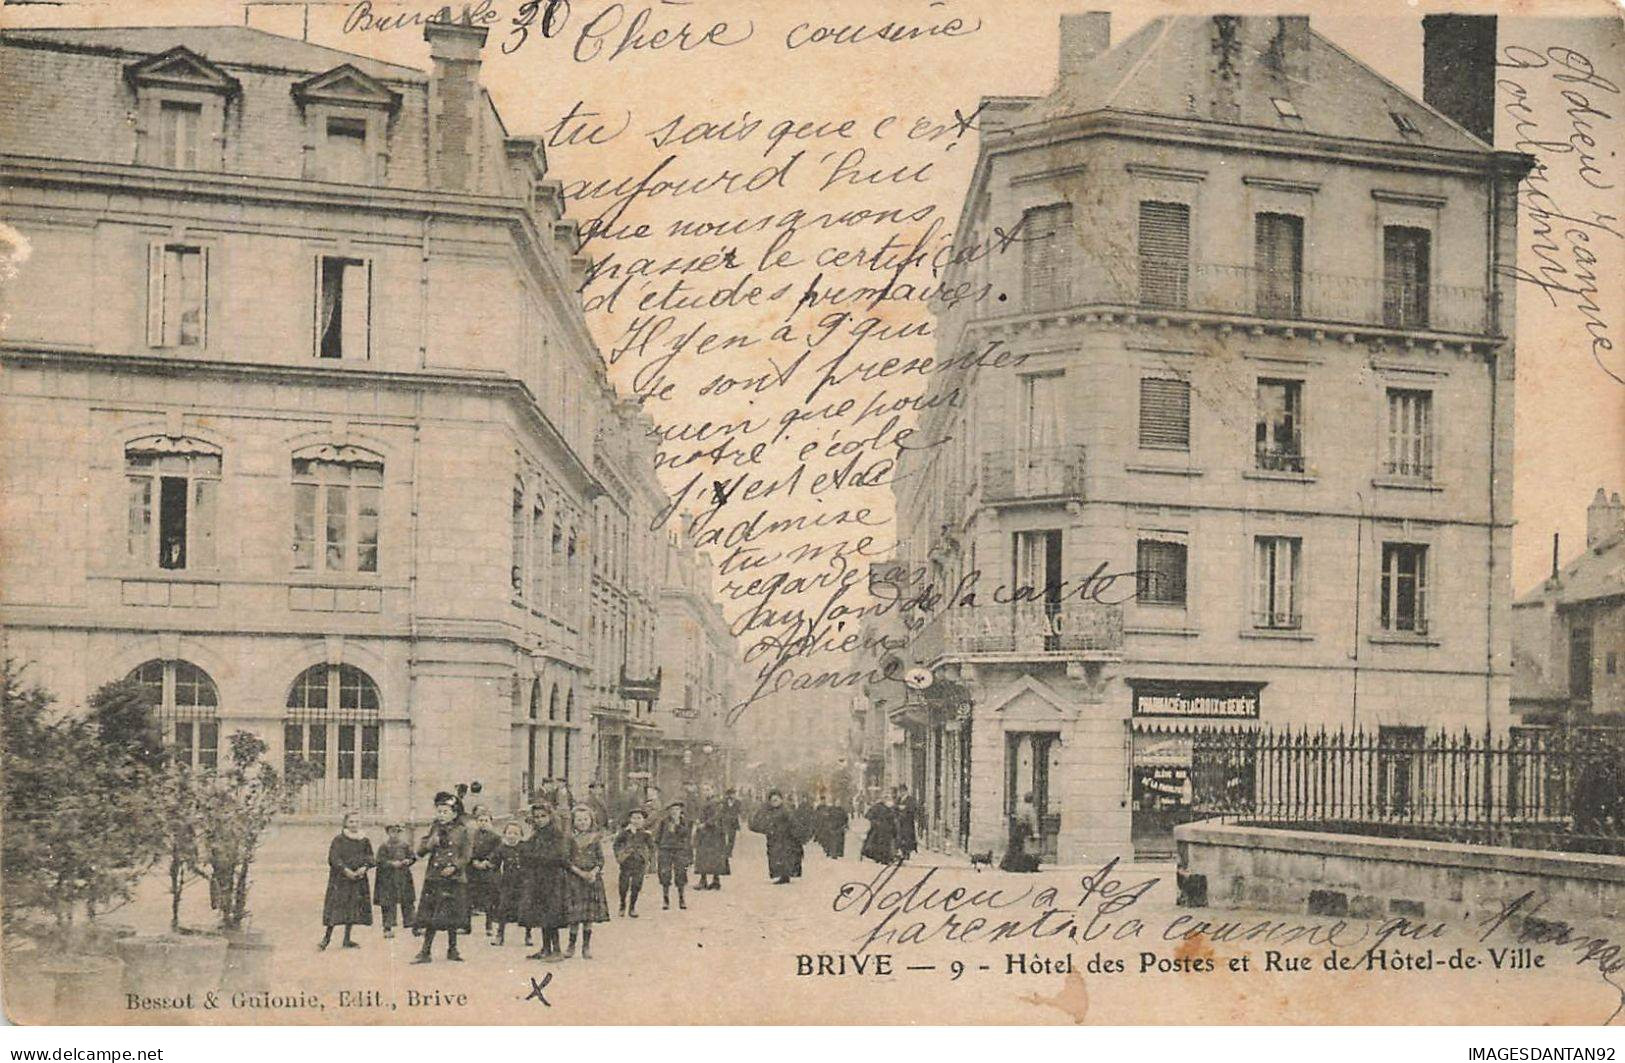 Brive le 30
Chère cousine
tu sais que c'est
aujourd'hui
que nous avons
passér le certificat
d'études primaires.
Il y en a 9 qui
se sont présentés
rien que pour
notre école
j'y est etait
admise
tu me
regarderas
au fond de la carte
Adieu
Jeanne
Adieu Jeanne
PHARMACIE DE LA CROIX DE GENÈVE
Adieu a tes
parents. La cousine qui t'aime
BRIVE — 9 - Hôtel des Postes et Rue de Hôtel-de-Ville
Bessot & Guionie, Edit., Brive
x
delcampe.net
IMAGESDANTAN92